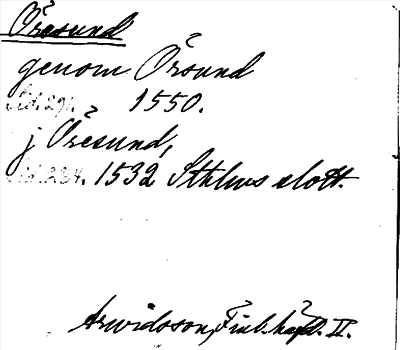 Öresund
genom Örsund
Sid. 291. 1550.
j Öresund,
Sid. 234. 1532 Sthlms slott.
Arwidsson, Finl. häfd. II.